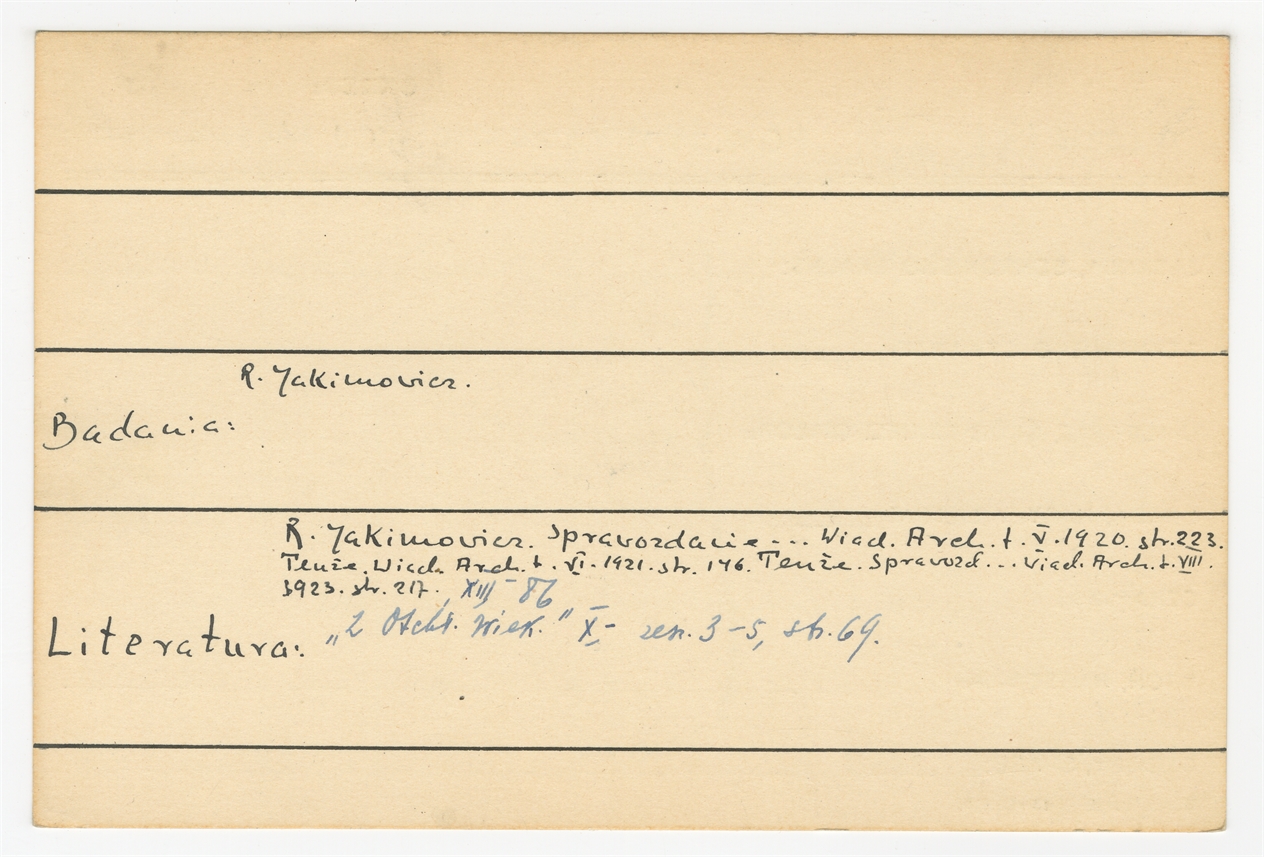 R. Jakimowicz.
Badania:
R. Jakimowicz. Sprawozdanie ... Wiad. Arch. t. V. 1920. str. 223.
Tenże. Wiad. Arch. t. VI. 1921. str. 146. Tenże. Sprawozd... Wiad. Arch. t. VIII.
1923. str. 217. , XIII - 86
Literatura: „Z Otchł. Wiek." X - zesz. 3-5, str. 69.